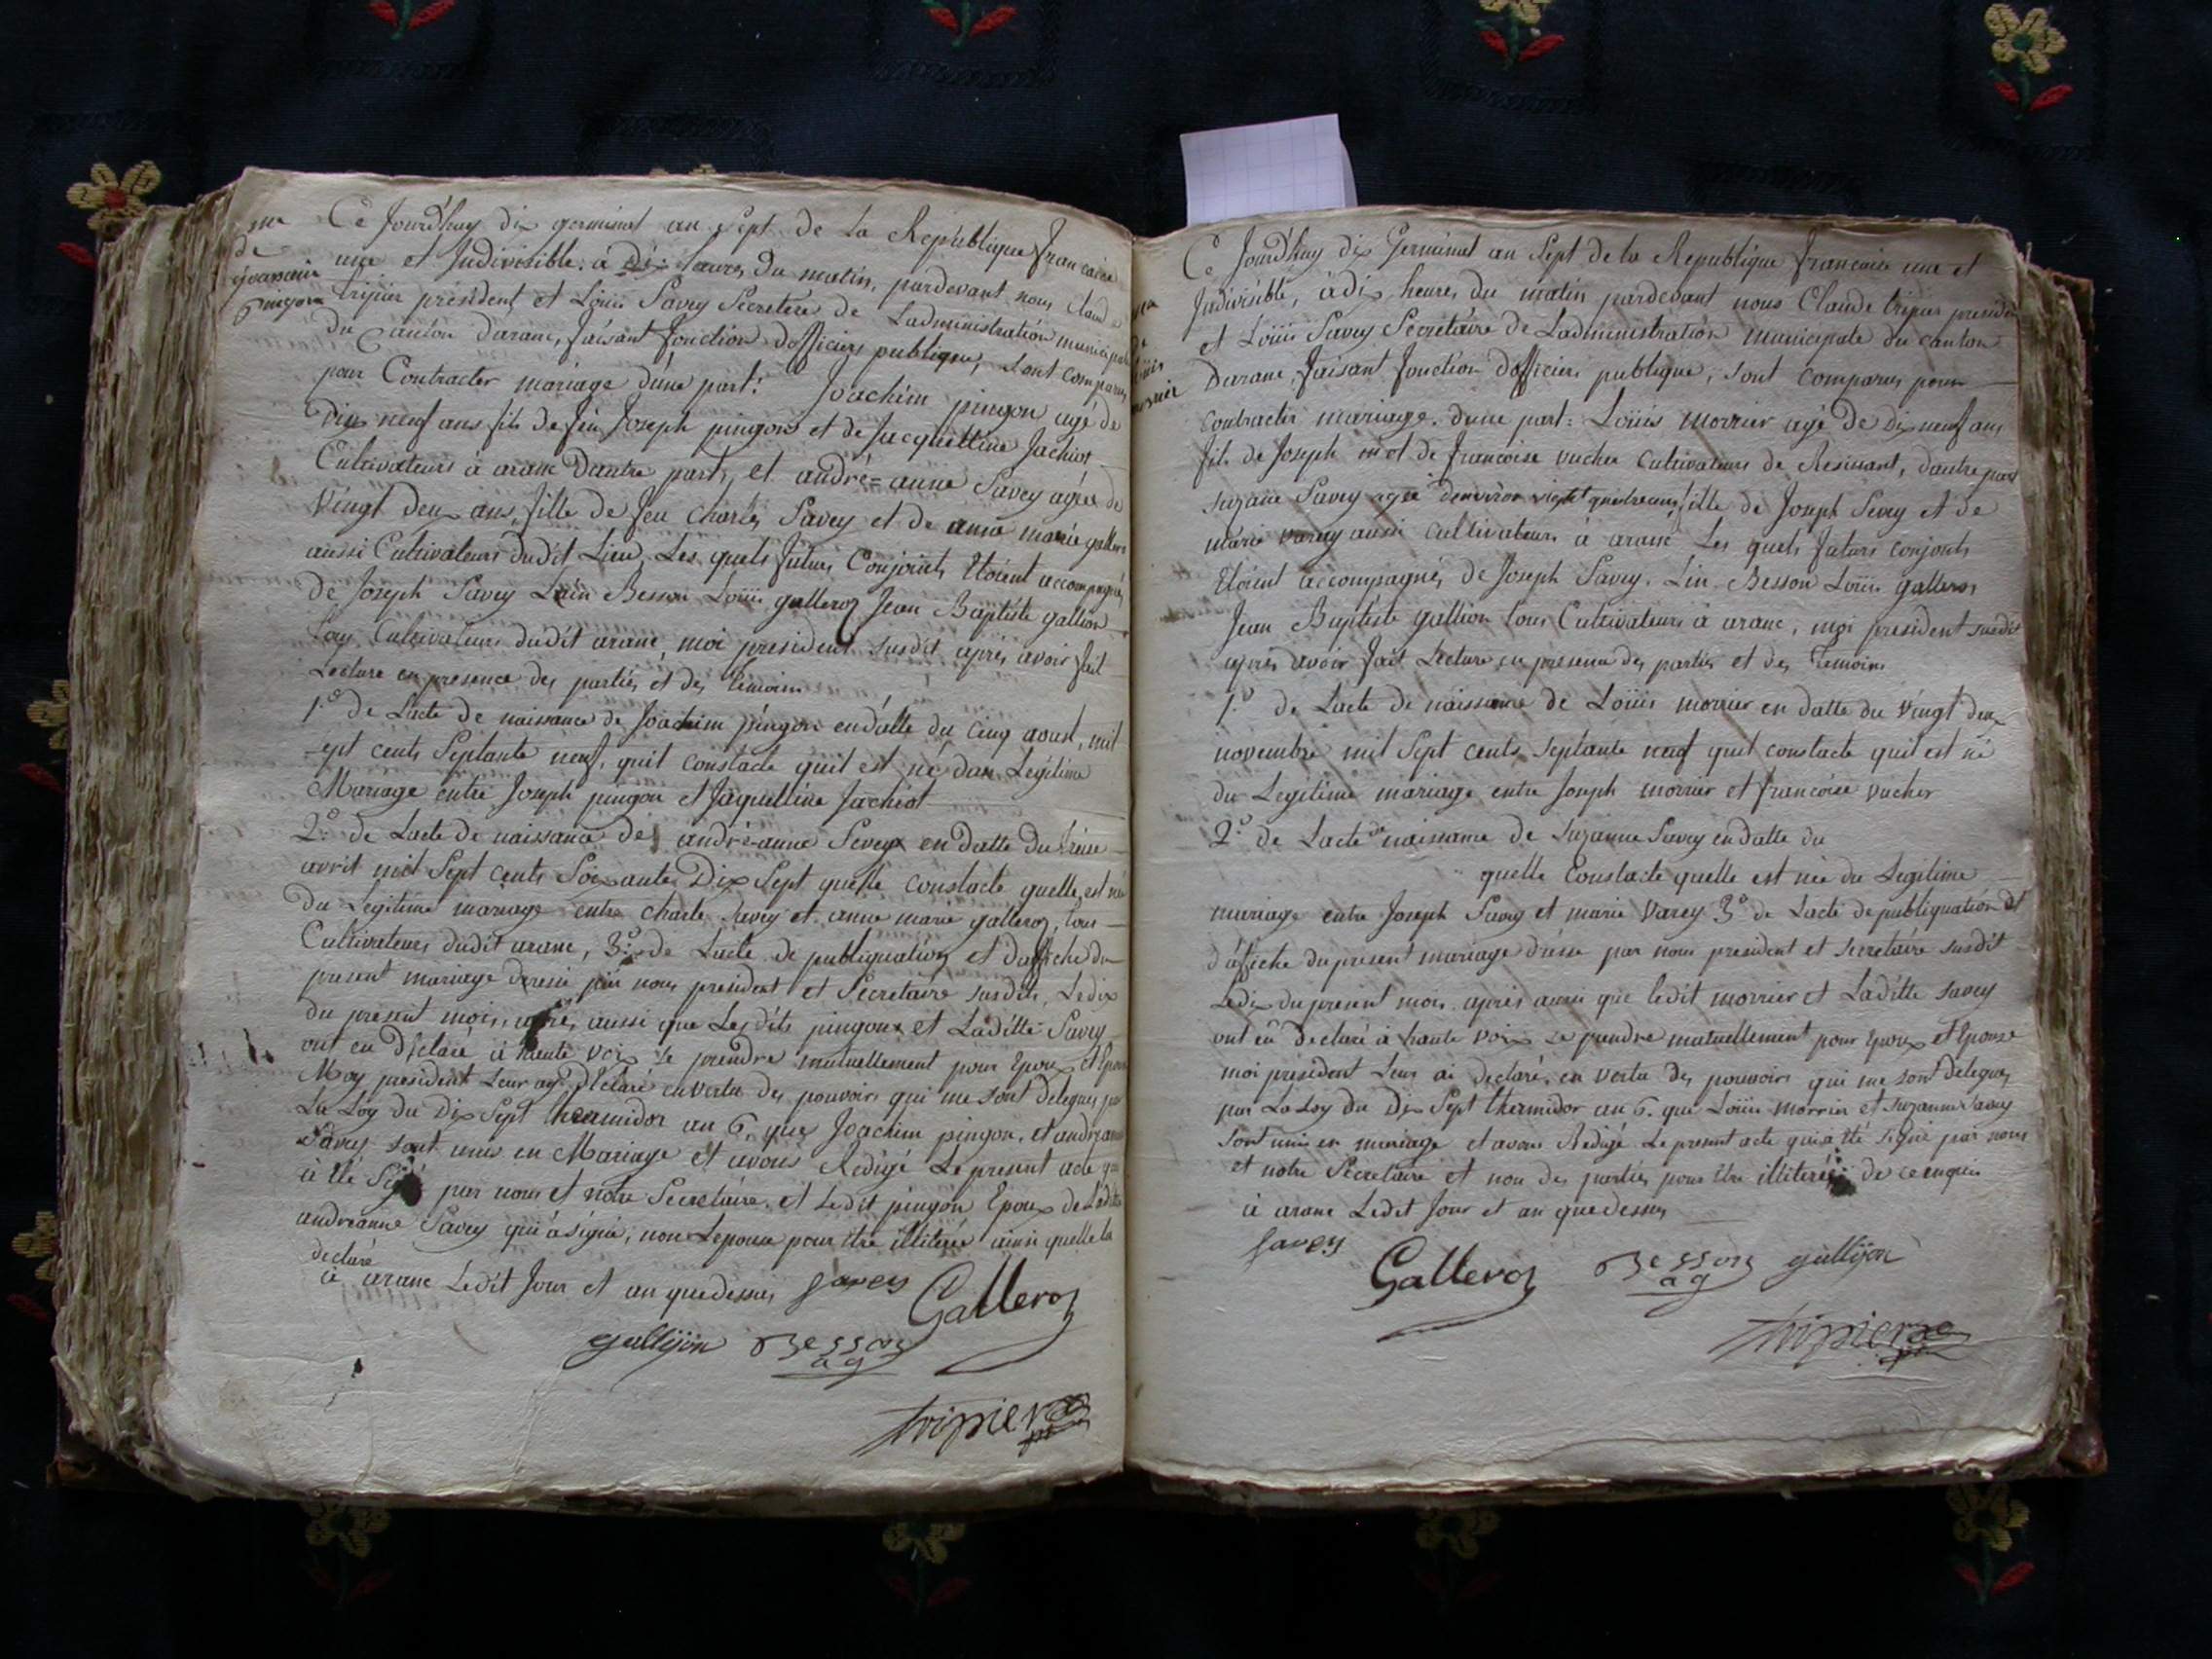 Ce Jourd'huy dix germinal an Sept de la République francaise
une et Indivisible. à dix heures du matin, pardevant nous Claude
tripier président et Loüis Savey Secretere de Ladministration municipale
du Canton daranc, faisant fonction dofficiers publique, sont comparus
pour Contracter mariage d'une part: Joachim pingon agé de
Dix neuf ans fils de feu Joseph pingon et de Jacquelline Jachiot
Cultivateurs à aranc Dautre part, et andré=anne Savey agée de
Vingt deux ans, fille de feu Charles Savey et de anne marie galleroz
aussi Cultivateurs dudit Lieu, Les quels futurs Conjoints Etoient accompagnés
de Joseph Savey Besson Loüis galleroz Jean Baptiste gallion
tous Cultivateurs dudit aranc, moi president susdit après avoir fait
Lecture en presence des parties et des temoins
1.° de Lacte de naissance de Joachim pingon endatte du Cinq aoust, mil
sept cents Septante neuf, quil constacte quil est né dun Legitime
Mariage entre Joseph pingon et Jaquelline Jachiot
2.° de Lacte de naissance de andré-anne Savey en datte du treise
avril mil Sept Cents Soixante Dix Sept quelle constacte quelle est né
du Legitime mariage entre Charle Savey et anne marie galleroz, tous
Cultivateurs dudit aranc, 3.° de Lacte de publiquation et daffiche du
present mariage dressé par nous president et Secretaire susdits, Ledix
du present mois, après aussi que Lesdits pingon et Laditte Savey
ont eu Déclaré à haute voix se prendre mutuellement pour Epoux et Epouse
Moy president Leur ay Déclaré en vertu des pouvoirs qui me sont delegues par
La Loy du Dix Sept thermidor an 6. que Joachim pingon, et andréanne
Savey sont unis en Mariage et avons Redigé Le present acte qui
à été Signé par nous et notre Secretaire, et Ledit pingon Epoux de Laditte
andréanne Savey qui à signé, non Lepouse pour être illiterée ainsi quelle la
declaré
à aranc Ledit Jour et an quedessus Savey
Galleroz
gallijon Besson
ag
tripier
Ce Jourd'huy dix Germinal an Sept de la Republique francaise une et
Indivisible, à dix heures du matin pardevant nous Claude tripier president
et Loüis Savey Secretaire de Ladministration municipale du canton
Daranc, faisant fonction dofficiers publique, sont comparus pour
contracter mariage. dune part: Loüis morrier agé de Dix neuf ans
fils de Joseph et de francoise vucher Cultivateurs de Resinant, dautre part
suzanne Savey agée denviron vingt quatre ans fille de Joseph Savey et de
marie varey aussi cultivateurs à aranc Les quels futurs conjoints
Etoient accompagnés de Joseph Savey. Besson Loüis galleroz
Jean Baptiste gallion tous Cultivateurs à aranc, moi president susdit
après avoir fait Lecture en presence des parties et des temoins
1.° de Lacte de naissance de Loüis morrier en datte du Vingt deux
novembre mil Sept cents septante neuf quil constacte quil est né
du Legitime mariage entre Joseph morrier et francoise vucher
2.° de Lacte de naissance de suzanne Savey en datte du
quelle Constacte quelle est née du Legitime
mariage entre Joseph Savey et marie Varey 3.° de Lacte de publiquation et
d'affiche du present mariage dressé par nous president et secretaire susdit
Ledix du present mois. après aussi que ledit morrier et Laditte Savey
ont eû declaré à haute voix se prendre mutuellement pour Epoux et Epouse
moi president Leur ai declaré, en vertu des pouvoirs qui me sont delegues
par La Loy du Dix Sept thermidor an 6. que Loüis morrier et suzanne Savey
sont unis en mariage et avons Redigé Le present acte qui a été signé par nous
et notre Secretaire et non des parties pour être illiterés de ce enquis
à aranc Ledit Jour et an quedessus
Savey
Galleroz Besson gallijon
ag
tripier